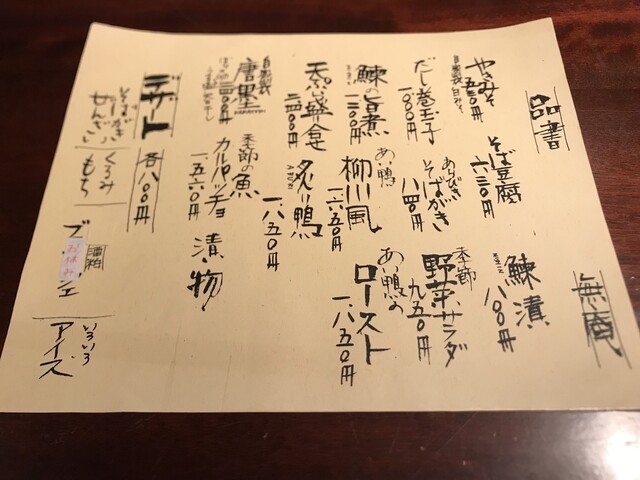 品書
無庵
やきみそ
五〇〇円
そば豆腐
六三〇円
鰊漬
八〇〇円
だし巻玉子
一、〇〇〇円
あらびき
そばがき
八四〇円
季節
野菜サラダ
九五〇円
鰊の旨煮
一、二〇〇円
あい鴨
柳川風
一、六五〇円
あい鴨の
ロースト
一、八五〇円
天ぷら盛合せ
炙り鴨
一、八五〇円
自家製
唐墨
季節の魚
カルパッチョ
一、五六〇円
漬物
デザート
各八〇〇円
そばがき
ぜんざい
くるみ
もち
酒粕
お休み
いろいろ
アイス